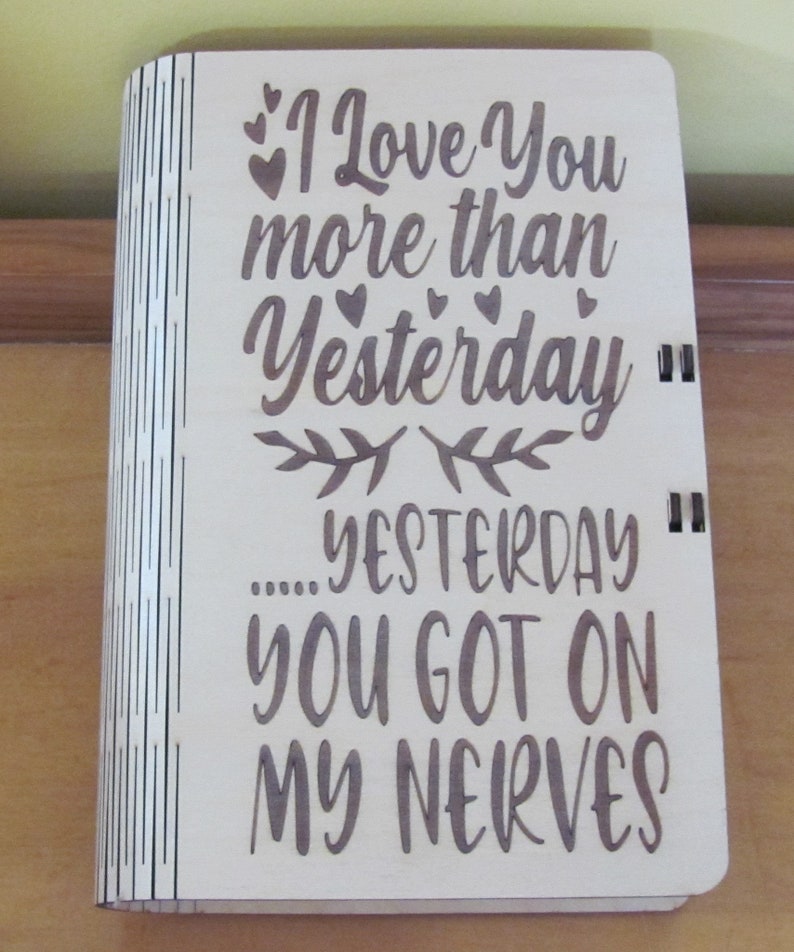 I Love You
more than
Yesterday
.....YESTERDAY
YOU GOT ON
MY NERVES